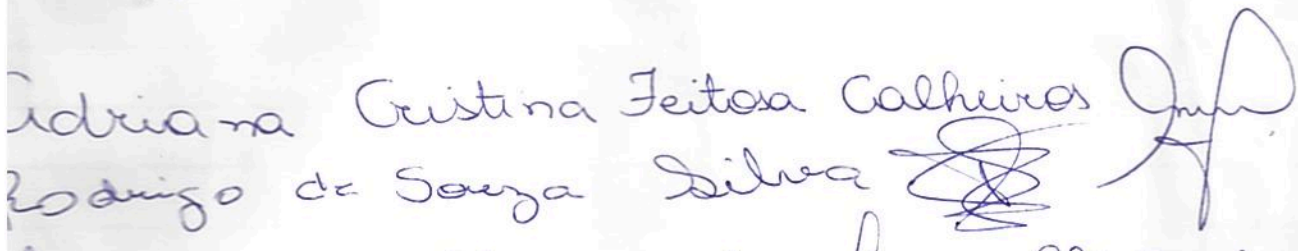 Adriana Cristina Feitosa Calheiros
Rodrigo de Souza Silva